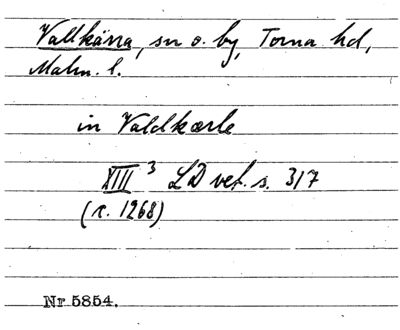 Vallkärra, sn o. by, Torna hd,
Malm. l.
in Valdkærle
XIII³ LD vet. s. 317
(c. 1268)
Nr 5854.